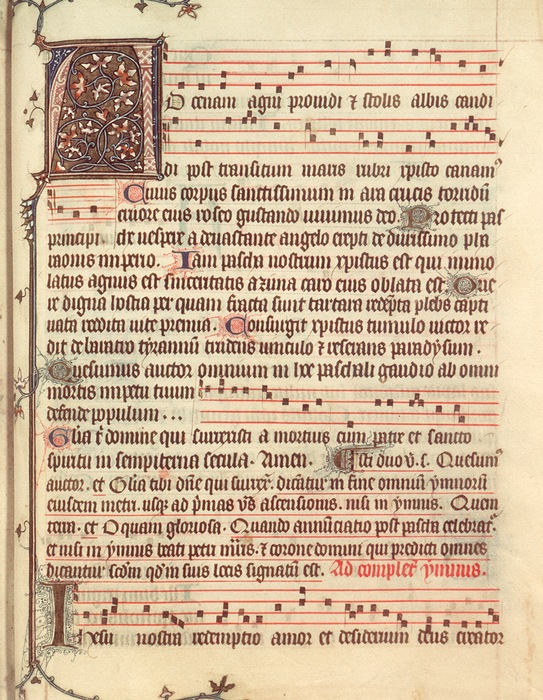 Ad cenam agni providi ⁊ stolis albis candi
di post transitum maris rubri xpisto canam⁹
Cuius corpus sanctissimum in ara crucis torridū
cruore eius roseo gustando vivimus deo. Protecti pas
principi de vespere a devastante angelo erepti de durissimo pha
raonis imperio. Iam pascha nostrum xpistus est qui immo
latus agnus est sinceritatis azima caro eius oblata est. O ve
re digna hostia per quam fracta sunt tartara redēpta plebs capti
vata reddita vite premia. Consurgit xpistus tumulo victor re
dit de baratro tyrannū trudens vinculo ⁊ reserans paradysum.
Quesumus auctor omnium in hoc paschali gaudio ab omni
mortis impetu tuum
defende populum...
Glia t̄ domine qui surrexisti a mortuis cum patre et sancto
spiritu in sempiterna secula. Amen. Isti duo v̄. s. Quesum⁹
auctor. et Glia tibi dn̄e qui surrex̄. dicūtur in fine omniū ymnorū
eiusdem metri. usqȝ ad p̄mas vēs ascensionis. nisi in ymnis. Quem
terra. et O quam gloriosa. Quando annūciatio post pascha celebrat᷒.
et nisi in ymnis beati petri m̄ris. ⁊ corone domini qui predicti omnes
dicantur scdm qd̓m suis locis signatū est. Ad complet̄ ymnus.
Ihesu nostra redemptio amor et desiderium deus creator